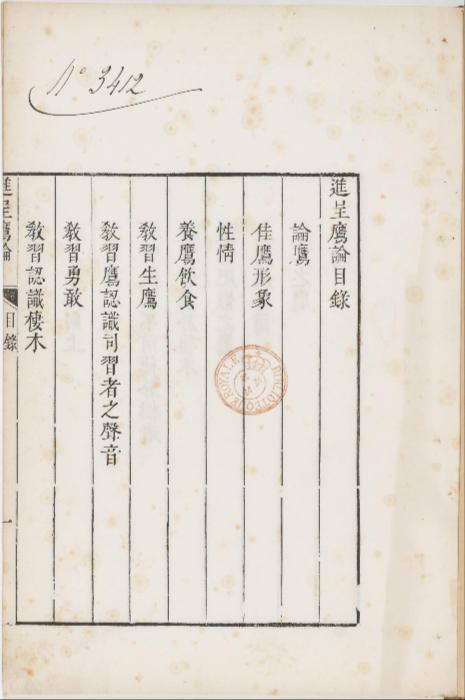 Nº 3412
進呈鷹論目錄
論鷹
佳鷹形象
性情
養鷹飲食
敎習生鷹
敎習鷹認識司習者之聲音
敎習勇敢
敎習認識棲木
進呈鷹論
目錄
一
BIBLIOTHEQUE ROYALE